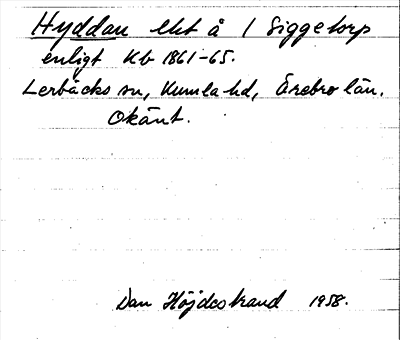 Hyddan lht å 1 Siggetorp
enligt Kb 1861-65.
Lerbäcks sn, Kumla hd, Örebro län.
Okänt.
Dan Höjdestrand 1958.